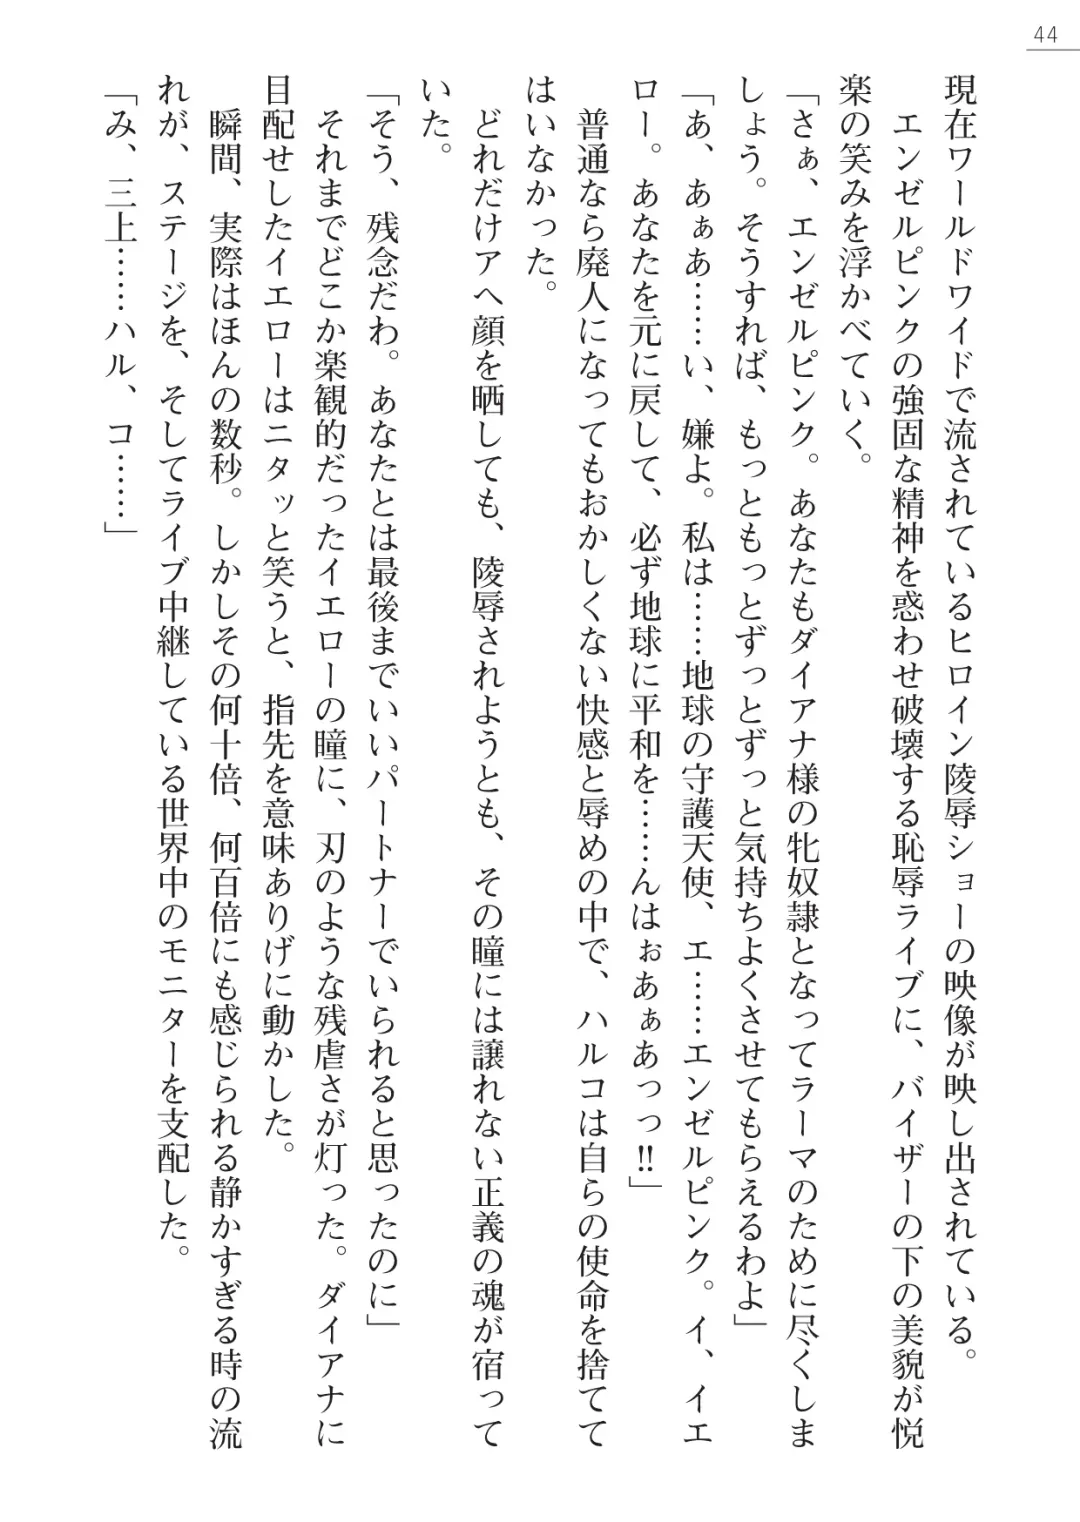 44
現在ワールドワイドで流されているヒロイン陵辱ショーの映像が映し出されている。
エンゼルピンクの強固な精神を惑わせ破壊する恥辱ライブに、バイザーの下の美貌が悦
楽の笑みを浮かべていく。
「さぁ、エンゼルピンク。あなたもダイアナ様の牝奴隷となってラーマのために尽くしま
しょう。そうすれば、もっともっとずっとずっと気持ちよくさせてもらえるわよ」
「あ、あぁあ……い、嫌よ。私は……地球の守護天使、エ……エンゼルピンク。イ、イエ
ロー。あなたを元に戻して、必ず地球に平和を……んはぉあぁあっっ‼」
普通なら廃人になってもおかしくない快感と辱めの中で、ハルコは自らの使命を捨てて
はいなかった。
どれだけアヘ顔を晒しても、陵辱されようとも、その瞳には譲れない正義の魂が宿って
いた。
「そう、残念だわ。あなたとは最後までいいパートナーでいられると思ったのに」
それまでどこか楽観的だったイエローの瞳に、刃のような残虐さが灯った。ダイアナに
目配せしたイエローはニタッと笑うと、指先を意味ありげに動かした。
瞬間、実際はほんの数秒。しかしその何十倍、何百倍にも感じられる静かすぎる時の流
れが、ステージを、そしてライブ中継している世界中のモニターを支配した。
「み、三上……ハル、コ……」